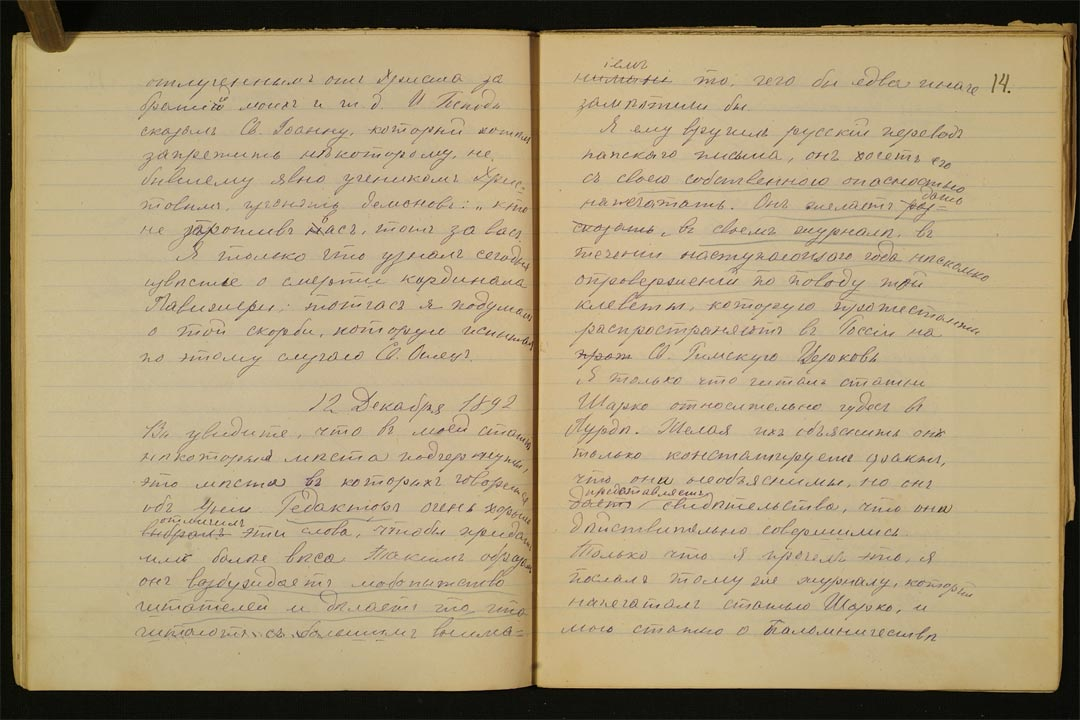 отлученнымъ отъ Христа за
братій моихъ и т. д. И Господь
сказалъ Св. Іоанну, который хотѣлъ
запретить нѣкоторому, не
бывшему явно ученикомъ Хрис-
товымъ, изгонять демоновъ: "кто
не противъ васъ, тотъ за васъ.
Я только что узналъ сегодня
извѣстіе о смерти кардинала
; тотчасъ я подумалъ
о той скорби, которую испыталъ
по этому случаю Св. Отецъ.
12 Декабря 1892
Вы увидите, что въ моей статьѣ
нѣкоторыя мѣста подчеркнуты,
это мѣста въ которыхъ говорится
объ Уніи. Редакторъ очень хорошо
отличилъ
выбралъ эти слова, чтобы придать
имъ болѣе вѣса. Такимъ образомъ
онъ возбуждаетъ любопытство
читателей и дѣлаетъ то, что
читаютъ съ большимъ внима=
14.
іемъ
то, чего бы едва иначе
замѣтили бы.
Я ему вручилъ русскій переводъ
папскаго письма, онъ хочетъ его
съ своею собственною опасностью
напечатать. Онъ желаетъ
дать
въ своемъ журналѣ, въ
теченіи наступающаго года нѣсколько
опроверженій по поводу той
клеветы, которую протестанты
распространяютъ въ Россіи на
Св. Римскую Церковь
Я только что читалъ статьи
Шарко относительно чудесъ въ
Лурдѣ. Желая ихъ объяснить онъ
только констатируетъ фактъ,
что они необъяснимы, но онъ
представляетъ
даетъ свидѣтельства, что они
дѣйствительно совершились.
Только что я прочелъ это, я
послалъ тому же журналу, который
напечаталъ статью Шарко, и
мою статью о Паломничествѣ